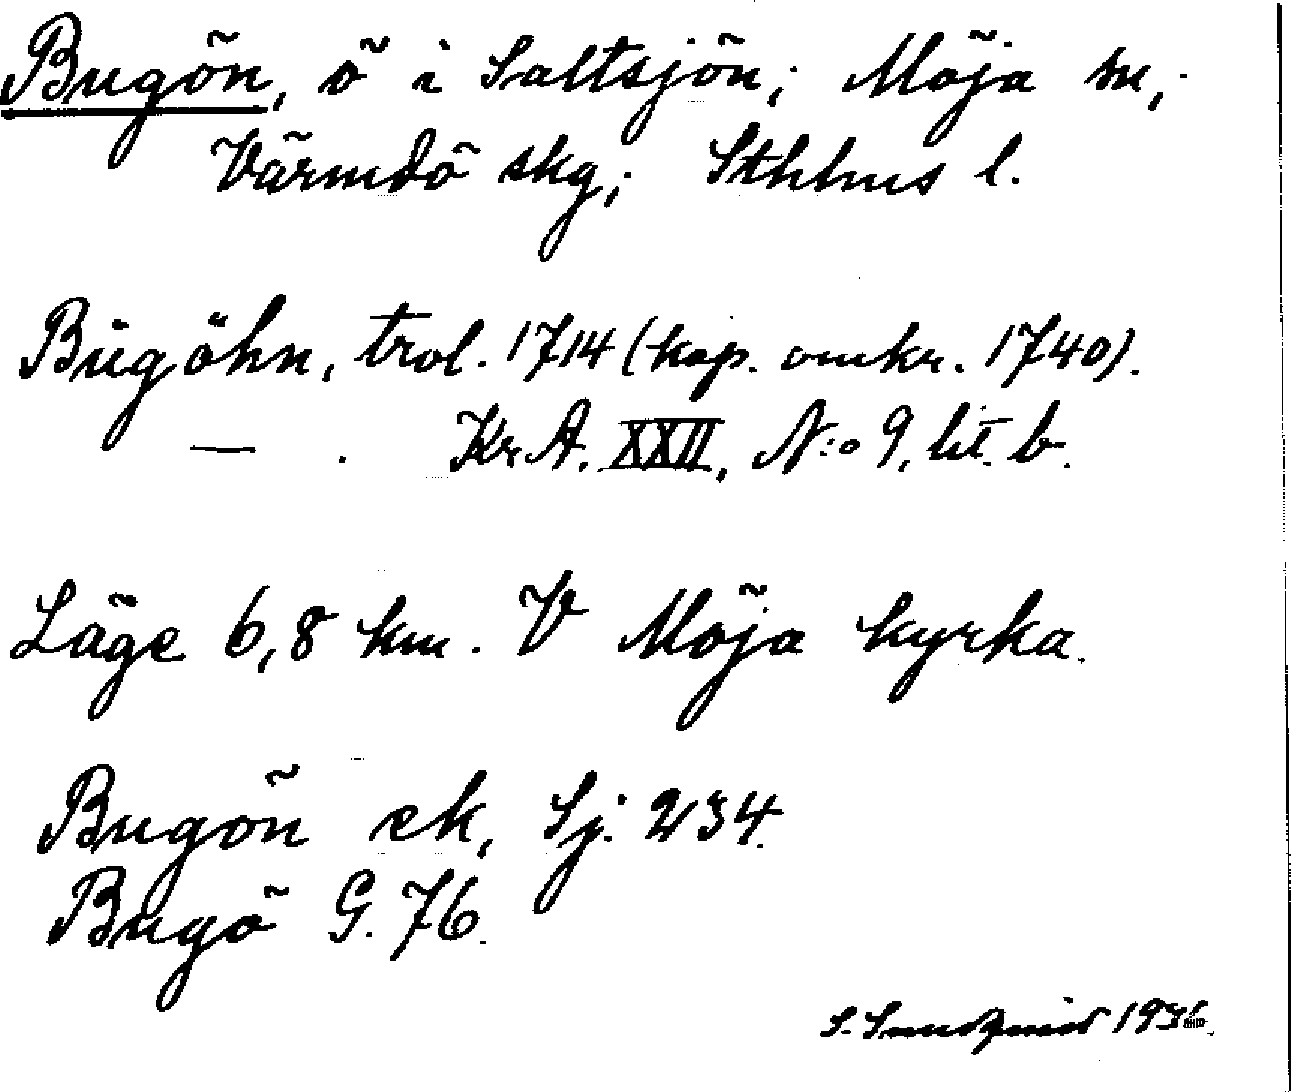 Bugön, ö i Saltsjön; Möja sn,
Värmdö skg; Sthlms l.
Bügöhn, trol. 1714 (kop. omkr. 1740).
— . Kr.A. XXII, N:o 9, lit. b.
Läge 6,8 km. V Möja kyrka.
Bugön ek, Sj. 234.
Bugö G. 76.
S. Sundqvist 193